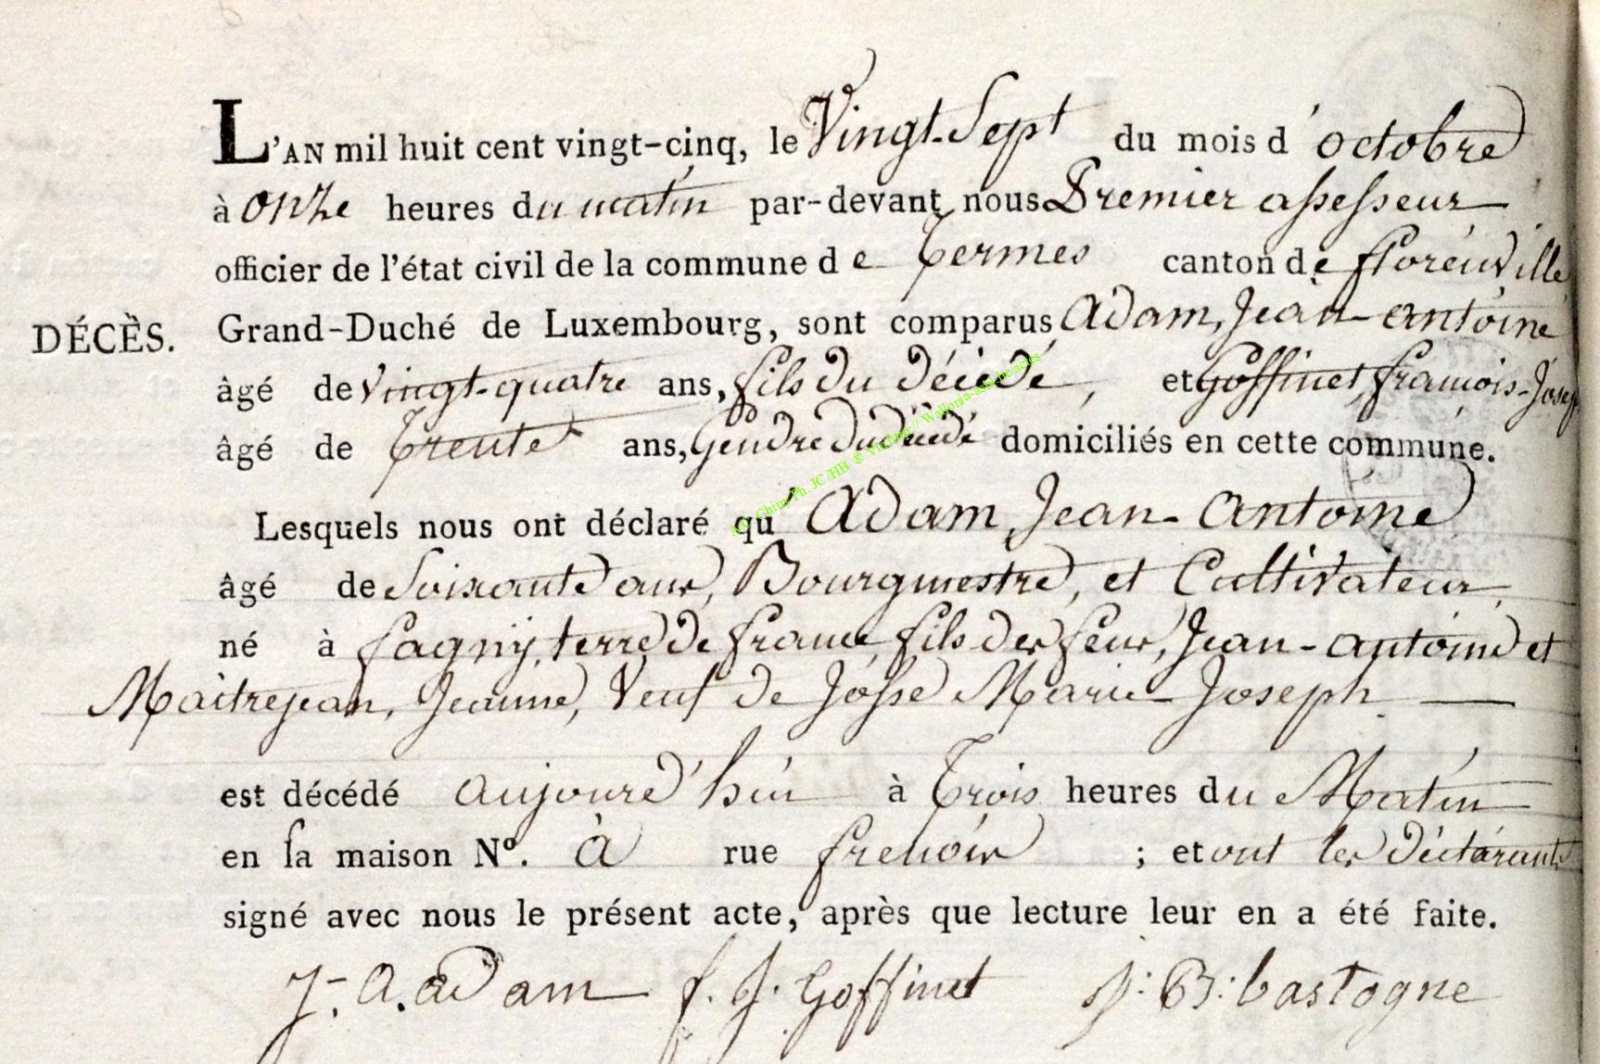 L'AN mil huit cent vingt-cinq, le Vingt-Sept du mois d'octobre
à onze heures du matin par-devant nous Premier assesseur
officier de l'état civil de la commune de Termes canton de florenville
DÉCÈS. Grand-Duché de Luxembourg, sont comparus Adam, Jean-antoine
âgé de vingt-quatre ans, fils du décédé, et Goffinet, francois-Josep
âgé de trente ans, Gendre du décédé domiciliés en cette commune.
Lesquels nous ont déclaré qu'Adam, Jean-antoine
âgé de Soixante ans, Bourgmestre, et Cultivateur,
né à fagny, terre de france, fils des feus, Jean-antoine et
Maitrejean, Jeanne, Veuf de Josse Marie Joseph —
est décédé aujourd'hui à Trois heures du Matin
en la maison Nº. à rue frenois ; et ont les déclarants
signé avec nous le présent acte, après que lecture leur en a été faite.
J-A. adam f. J. Goffinet J: B: bastogne